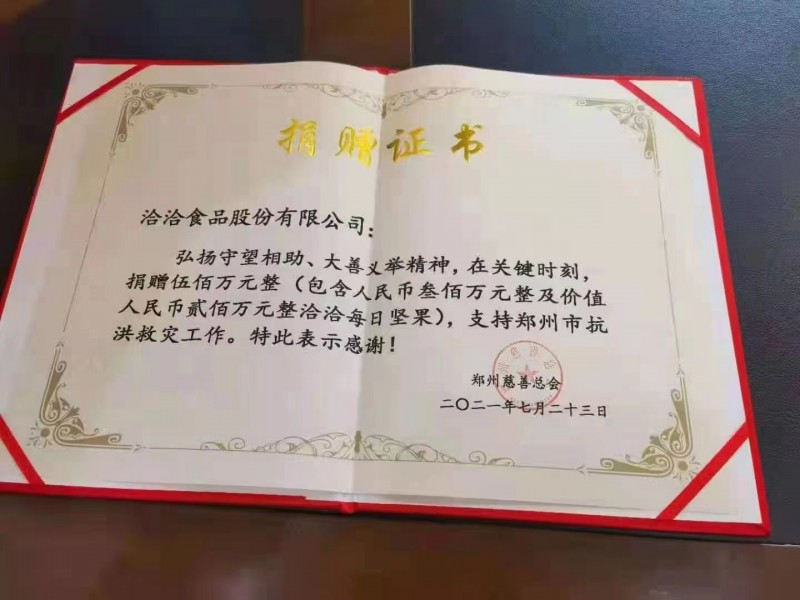 捐赠证书
洽洽食品股份有限公司：
弘扬守望相助、大善义举精神，在关键时刻，
捐赠伍佰万元整（包含人民币叁佰万元整及价值
人民币贰佰万元整洽洽每日坚果），支持郑州市抗
洪救灾工作。特此表示感谢！
郑州慈善总会
二〇二一年七月二十三日